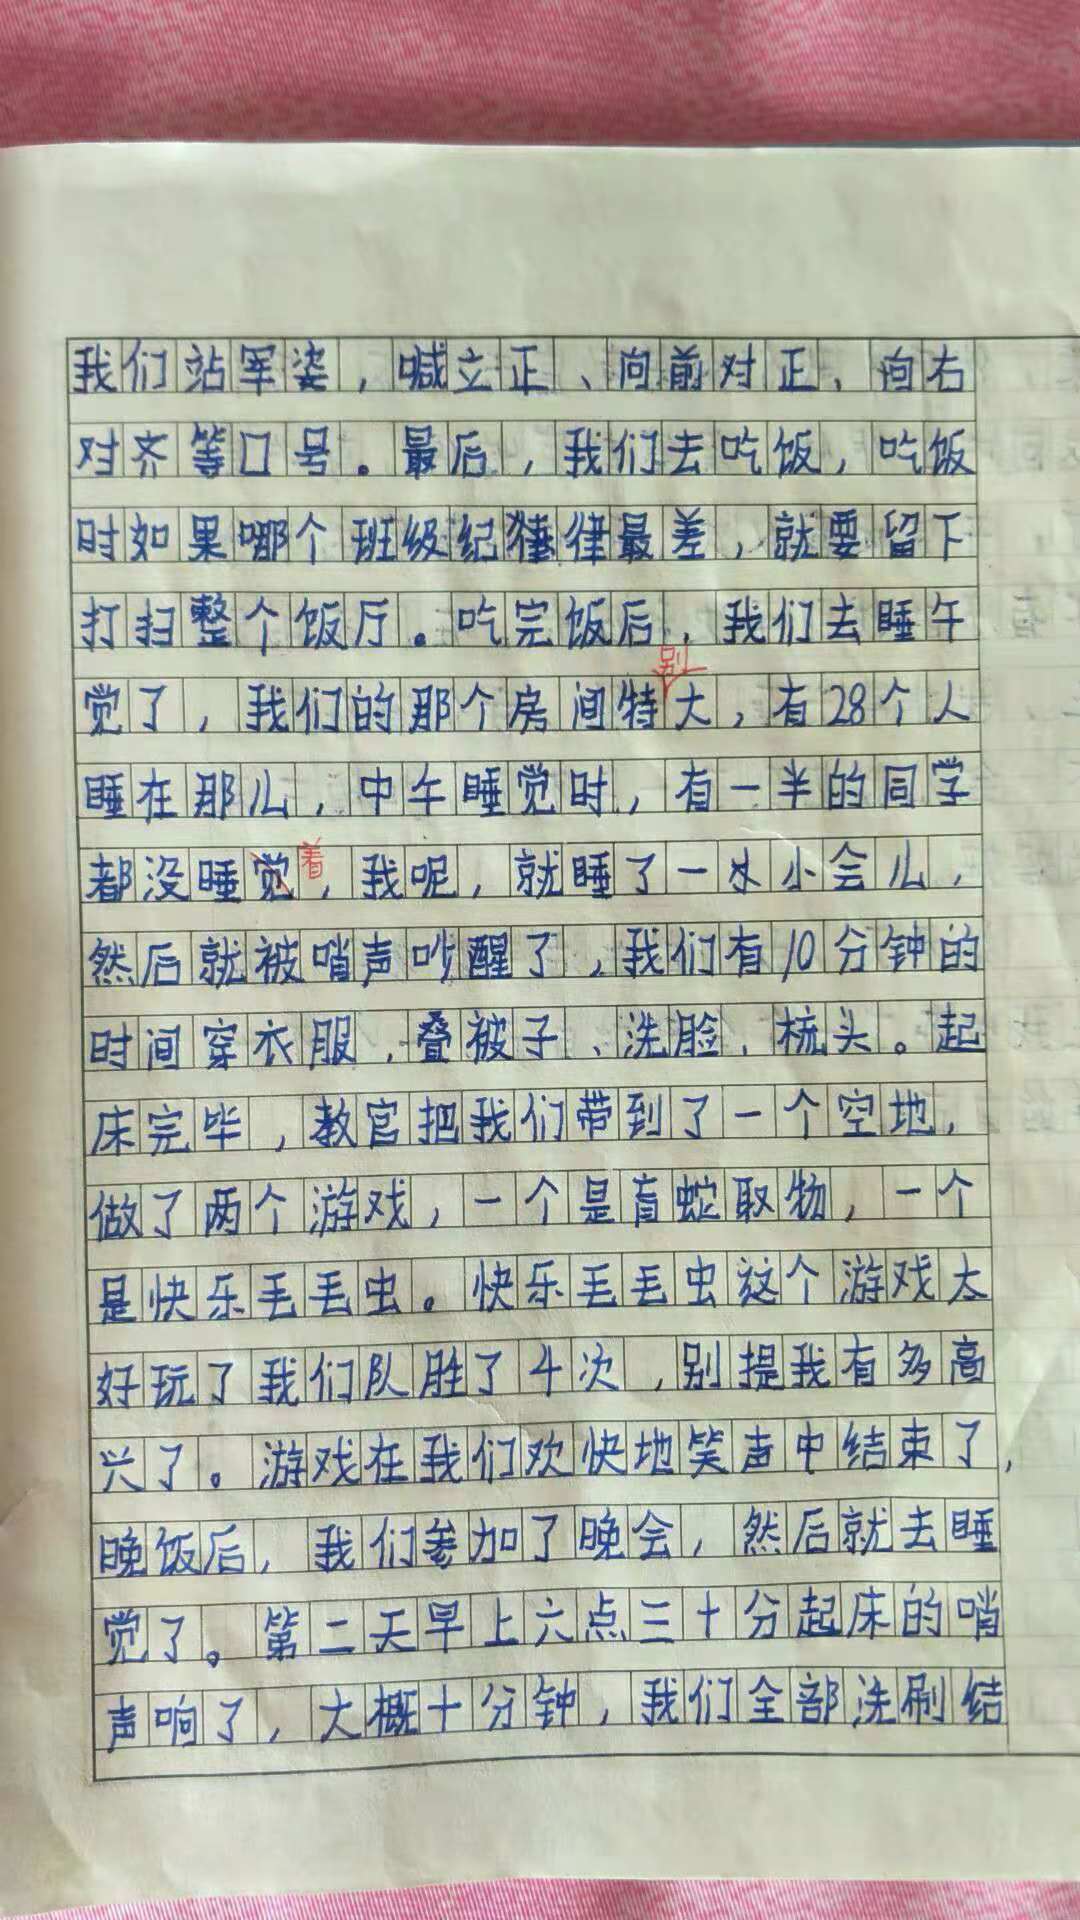 我们站军姿，喊立正、向前对正、向右
对齐等口号。最后，我们去吃饭，吃饭
时如果哪个班级纪律最差，就要留下
打扫整个饭厅。吃完饭后，我们去睡午
觉了，我们的那个房间特别大，有28个人
睡在那儿，中午睡觉时，有一半的同学
都没睡觉着，我呢，就睡了一小会儿，
然后就被哨声吵醒了，我们有10分钟的
时间穿衣服、叠被子、洗脸、梳头。起
床完毕，教官把我们带到了一个空地，
做了两个游戏，一个是盲蛇取物，一个
是快乐毛毛虫。快乐毛毛虫这个游戏太
好玩了我们队胜了4次，别提我有多高
兴了。游戏在我们欢快地笑声中结束了，
晚饭后，我们参加了晚会，然后就去睡
觉了。第二天早上六点三十分起床的哨
声响了，大概十分钟，我们全部洗刷结